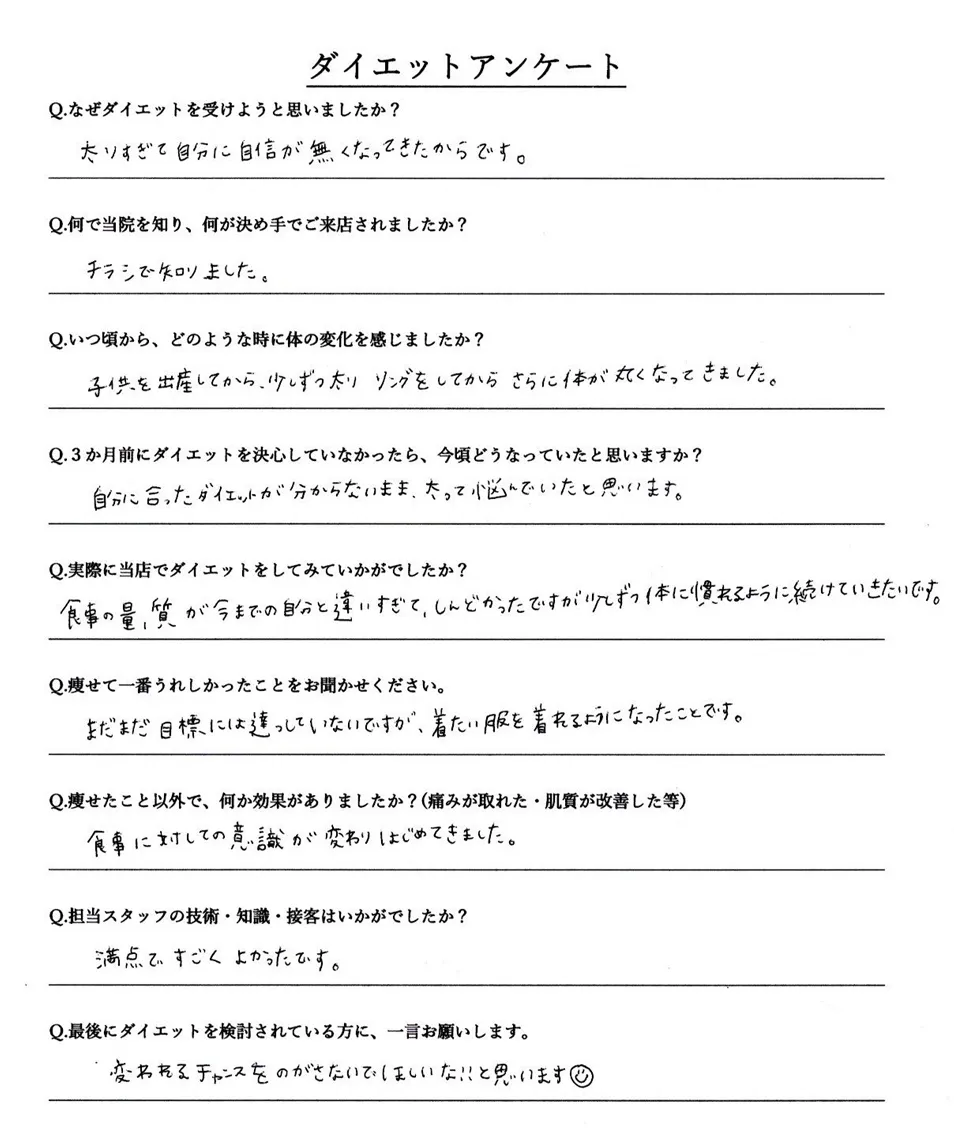 ダイエットアンケート
Q.なぜダイエットを受けようと思いましたか？
太りすぎて自分に自信が無くなってきたからです。
Q.何で当院を知り、何が決め手でご来店されましたか？
チラシで知りました。
Q.いつ頃から、どのような時に体の変化を感じましたか？
子供を出産してから、少しずつ太り リングをしてから さらに体が丸くなってきました。
Q.３か月前にダイエットを決心していなかったら、今頃どうなっていたと思いますか？
自分に合ったダイエットが分からないまま、太って悩んでいたと思います。
Q.実際に当店でダイエットをしてみていかがでしたか？
食事の量、質が今までの自分と違いすぎて、しんどかったですが少しずつ体に慣れるように続けていきたいです。
Q.痩せて一番うれしかったことをお聞かせください。
まだまだ目標には達っしていないですが、着たい服を着れるようになったことです。
Q.痩せたこと以外で、何か効果がありましたか？(痛みが取れた・肌質が改善した等)
食事に対しての意識が変わりはじめてきました。
Q.担当スタッフの技術・知識・接客はいかがでしたか？
満点ですごくよかったです。
Q.最後にダイエットを検討されている方に、一言お願いします。
変われるチャンスをのがさないでほしいな!!と思います☺